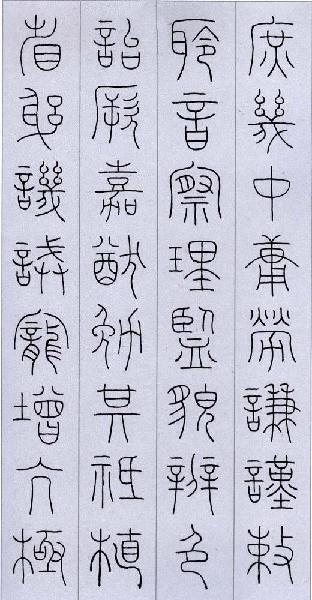 庶幾中庸勞謙謹敕
聆音察理鑒貌辨色
詒厥嘉猷勉其祗植
省躬譏誡寵增亢極